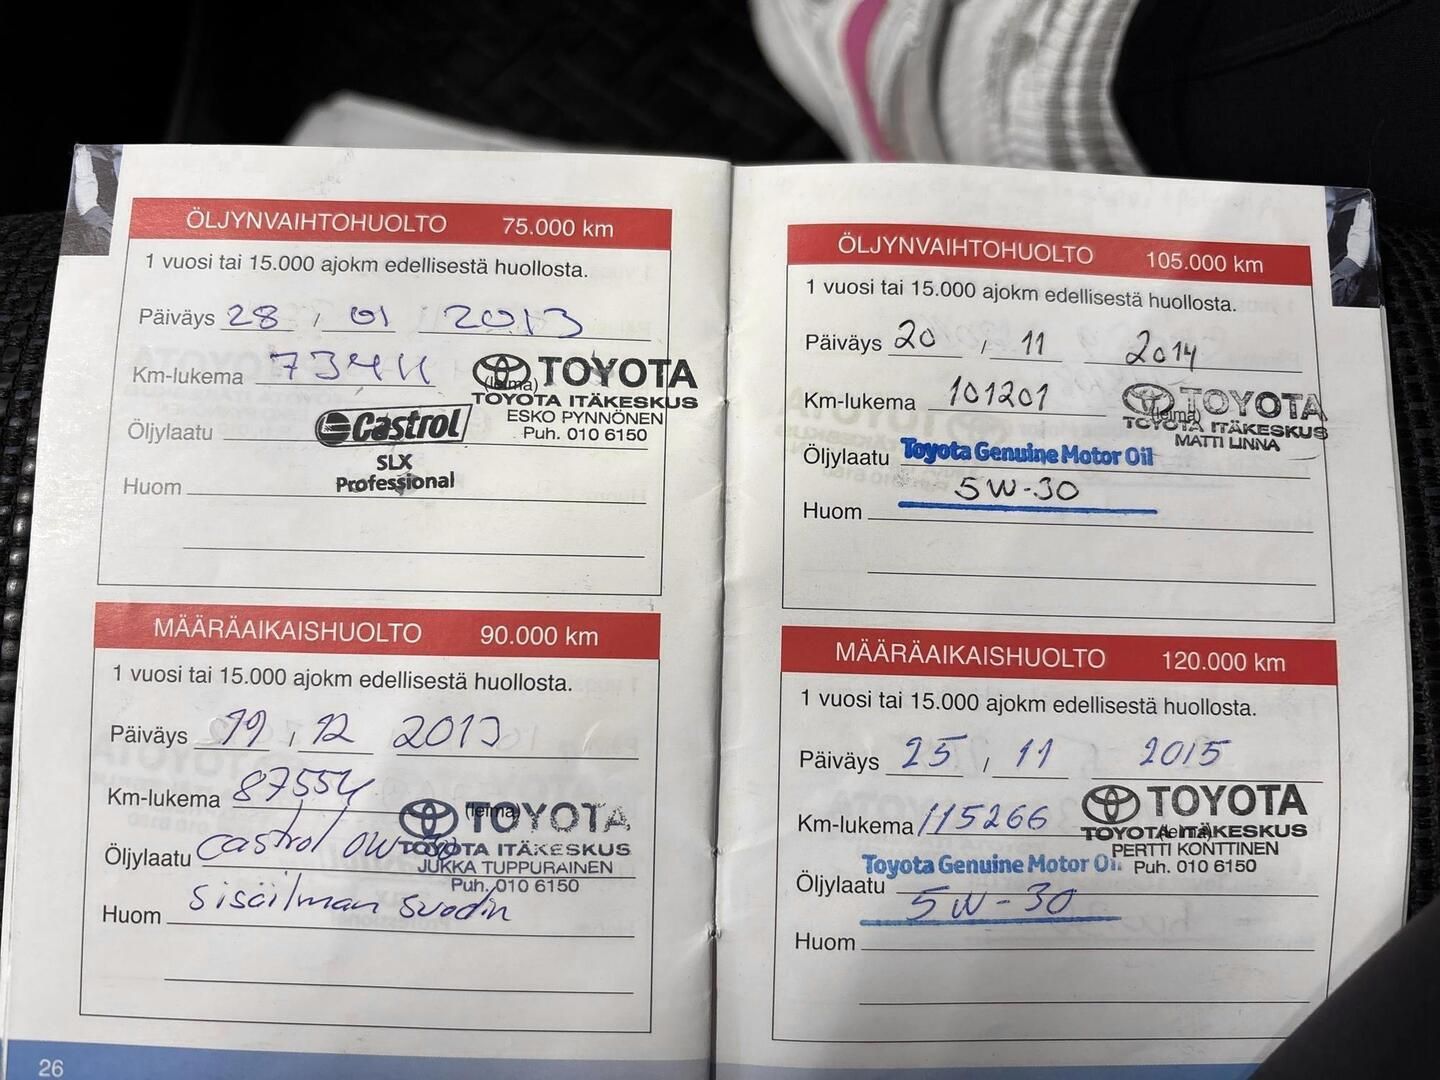 ÖLJYNVAIHTOHUOLTO 75.000 km
1 vuosi tai 15.000 ajokm edellisestä huollosta.
Päiväys 28 / 01 2013
Km-lukema 73411
(leima)
TOYOTA
TOYOTA ITÄKESKUS
ESKO PYNNÖNEN
Puh. 010 6150
Öljylaatu Castrol
SLX
Professional
Huom
MÄÄRÄAIKAISHUOLTO 90.000 km
1 vuosi tai 15.000 ajokm edellisestä huollosta.
Päiväys 19 / 12 2013
Km-lukema 87554
(leima)
TOYOTA
TOYOTA ITÄKESKUS
JUKKA TUPPURAINEN
Puh. 010 6150
Öljylaatu Castrol
Huom sisäilman suodin
26
ÖLJYNVAIHTOHUOLTO 105.000 km
1 vuosi tai 15.000 ajokm edellisestä huollosta.
Päiväys 20 / 11 2014
Km-lukema 101201
(leima)
TOYOTA
TOYOTA ITÄKESKUS
MATTI LINNA
Öljylaatu Toyota Genuine Motor Oil
5W-30
Huom
MÄÄRÄAIKAISHUOLTO 120.000 km
1 vuosi tai 15.000 ajokm edellisestä huollosta.
Päiväys 25 / 11 2015
Km-lukema 115266
(leima)
TOYOTA
TOYOTA ITÄKESKUS
PERTTI KONTTINEN
Puh. 010 6150
Toyota Genuine Motor Oil
Öljylaatu 5W-30
Huom